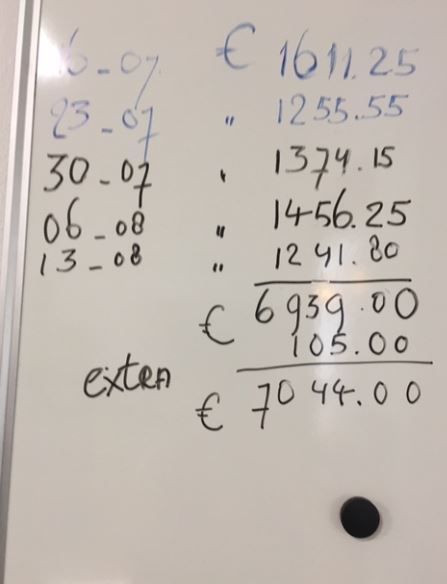 16-07 € 1611.25
23-07 " 1255.55
30-07 " 1374.15
06-08 " 1456.25
13-08 " 1241.80
€ 6939.00
105.00
extra
€ 7044.00